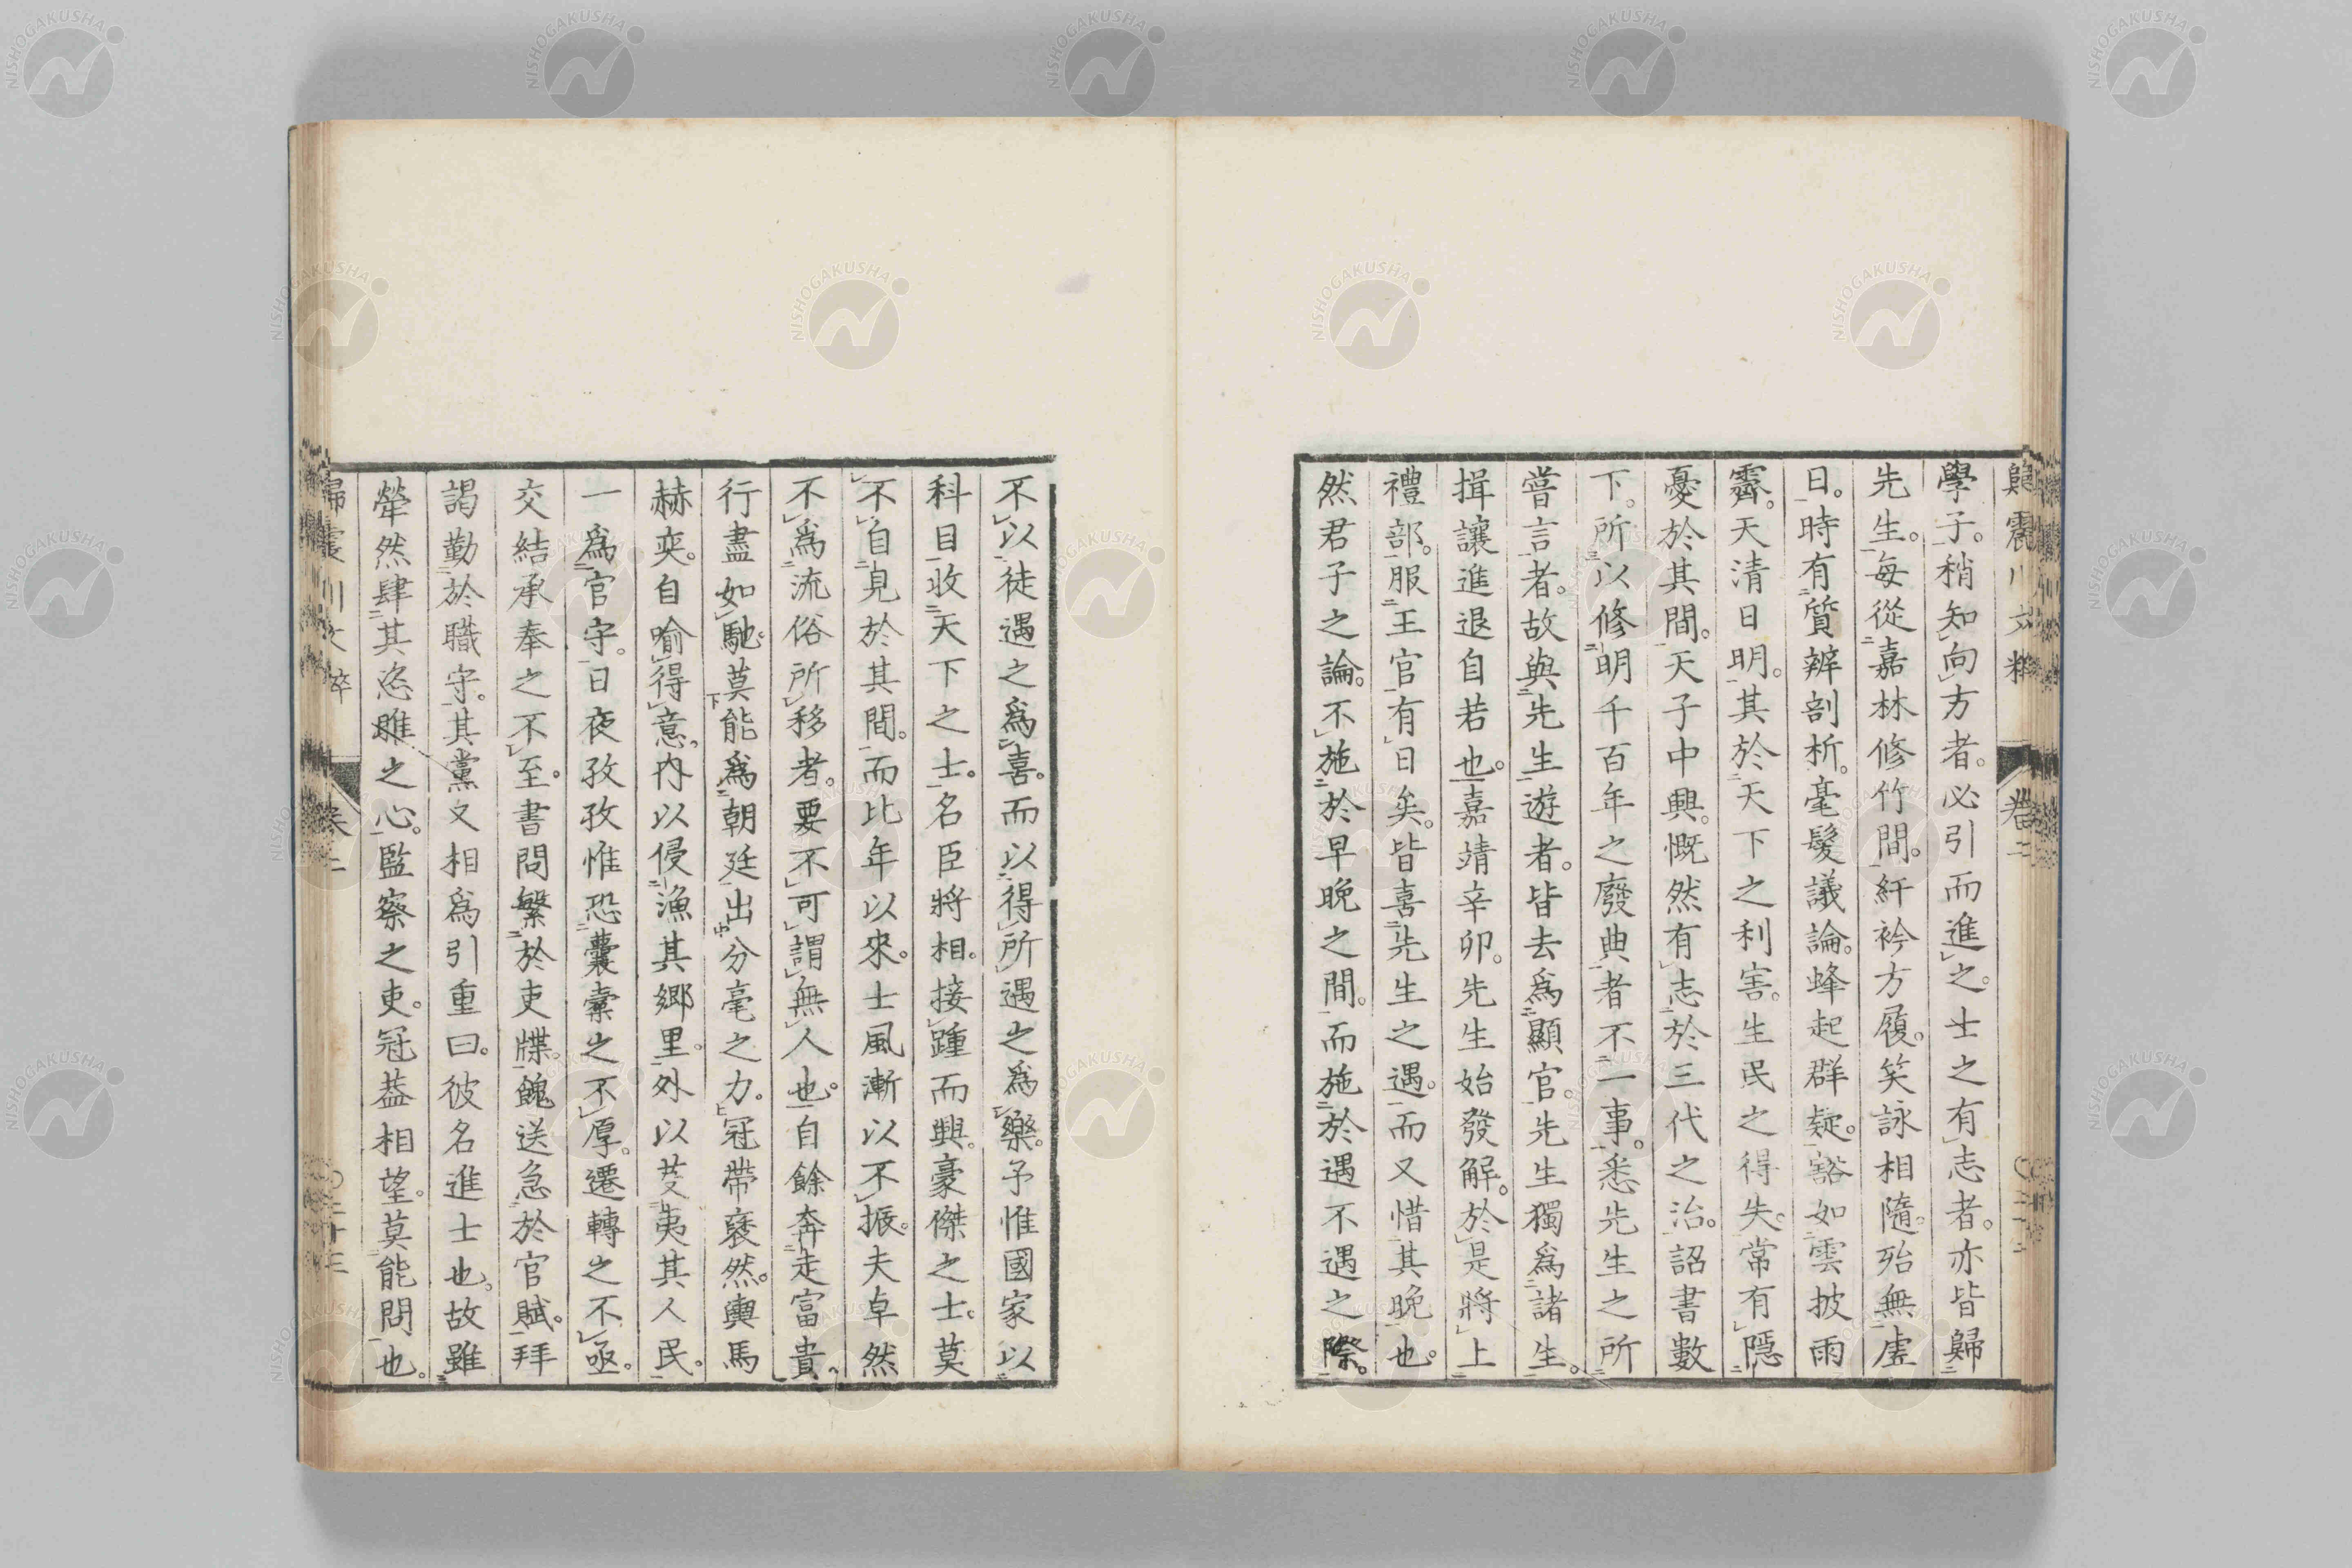 歸震川文粹 卷二
學子。稍知向方者。必引而進之。士之有志者。亦皆歸
先生。每從嘉林修竹間。紆衿方履。笑詠相隨。殆無虛
日。時有質辨剖析。毫髮議論。蜂起群疑。豁如雲披雨
霽。天清日明。其於天下之利害。生民之得失。常有隱
憂於其間。天子中興。慨然有志於三代之治。詔書數
下。所以修明千百年之廢典者不一事。悉先生之所
嘗言者。故與先生遊者。皆去為顯官。先生獨為諸生。
揖讓進退自若也。嘉靖辛卯。先生始發解。於是將上
禮部。服王官有日矣。皆喜先生之遇。而又惜其晚也。
然君子之論。不施於早晚之間。而施於遇不遇之際。
不以徒遇之為喜。而以得所遇之為樂。予惟國家以
科目收天下之士。名臣將相。接踵而興。豪傑之士。莫
不自見於其間。而比年以來。士風漸以不振。夫卓然
不為流俗所移者。要不可謂無人也。自餘奔走富貴。
行盡如馳。莫能為朝廷出分毫之力。冠帶裒然。輿馬
赫奕。自喻得意。內以侵漁其鄉里。外以芟夷其人民。
一為官守。日夜孜孜惟恐囊橐之不厚。遷轉之不亟。
交結承奉之不至。書問繁於吏牒。餽送急於官賦。拜
謁勤於職守。其黨又相為引重曰。彼名進士也。故雖
犖然肆其恣睢之心。監察之吏。冠蓋相望。莫能問也。
歸震川文粹 卷二 二十三
NISHOGAKUSHA